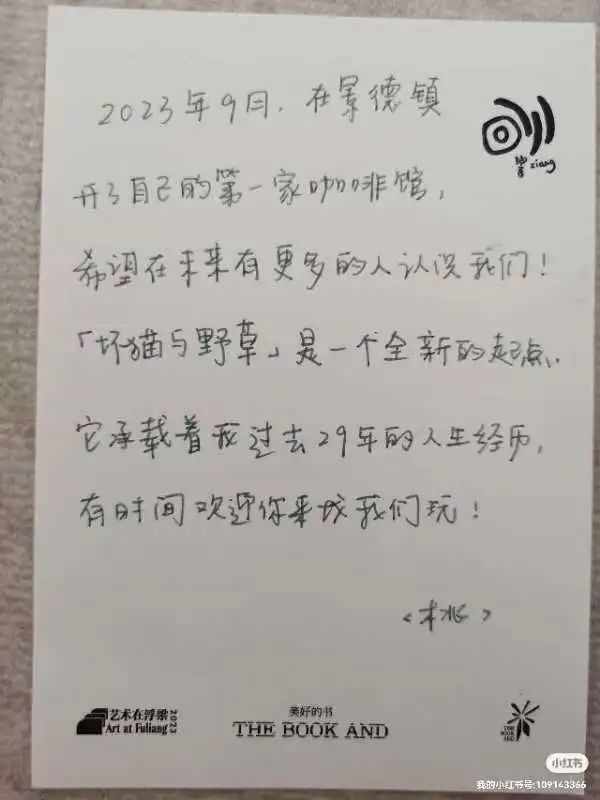 2023年9月.在景德镇
响 xiang
开了自己的第一家咖啡馆,
希望在未来有更多的人认识我们!
「坏猫与野草」是一个全新的起点.
它承载着我过去29年的人生经历,
有时间欢迎你来找我们玩!
<桃>
艺术在浮梁 2023
Art at Fuliang
美好的书
THE BOOK AND
THE BOOK AND
小红书
我的小红书号:109143366